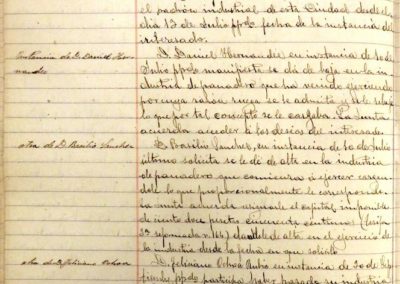 el padrón industrial de esta Ciudad desde el
día 13 de Julio ppdo. fecha de la instancia del
interesado.
Instancia de D. Daniel Her-
nandez
D. Daniel Hernandez, en instancia de 30 de
Julio ppdo manifiesta se dá de baja en la in-
dustria de panadero que ha venido ejerciendo
por cuya razon ruega se le admita y se le rebaje
lo que por tal concepto se le cargaba. La Junta
acuerda acceder a los deseos del interesado.
otra de D. Basilio Sanchez
D. Basilio Sanchez, en instancia de 30 de Julio
último solicita se le dé de alta en la industria
de panadero que comienza á ejercer cargan-
dole lo que proporcionalmente le corresponda.
La Junta acuerda asignarle el capital imponible
de ciento doce pesetas cincuenta centimos (Tarifa
3ª reformada n. 164) dandole de alta en el ejercicio de
la industria desde la fecha en que solicitó
otra de D. Feliciano Ochoa
D. Feliciano Ochoa Rubio en instancia de 30 de
ppdo. participa haber pasado su industria